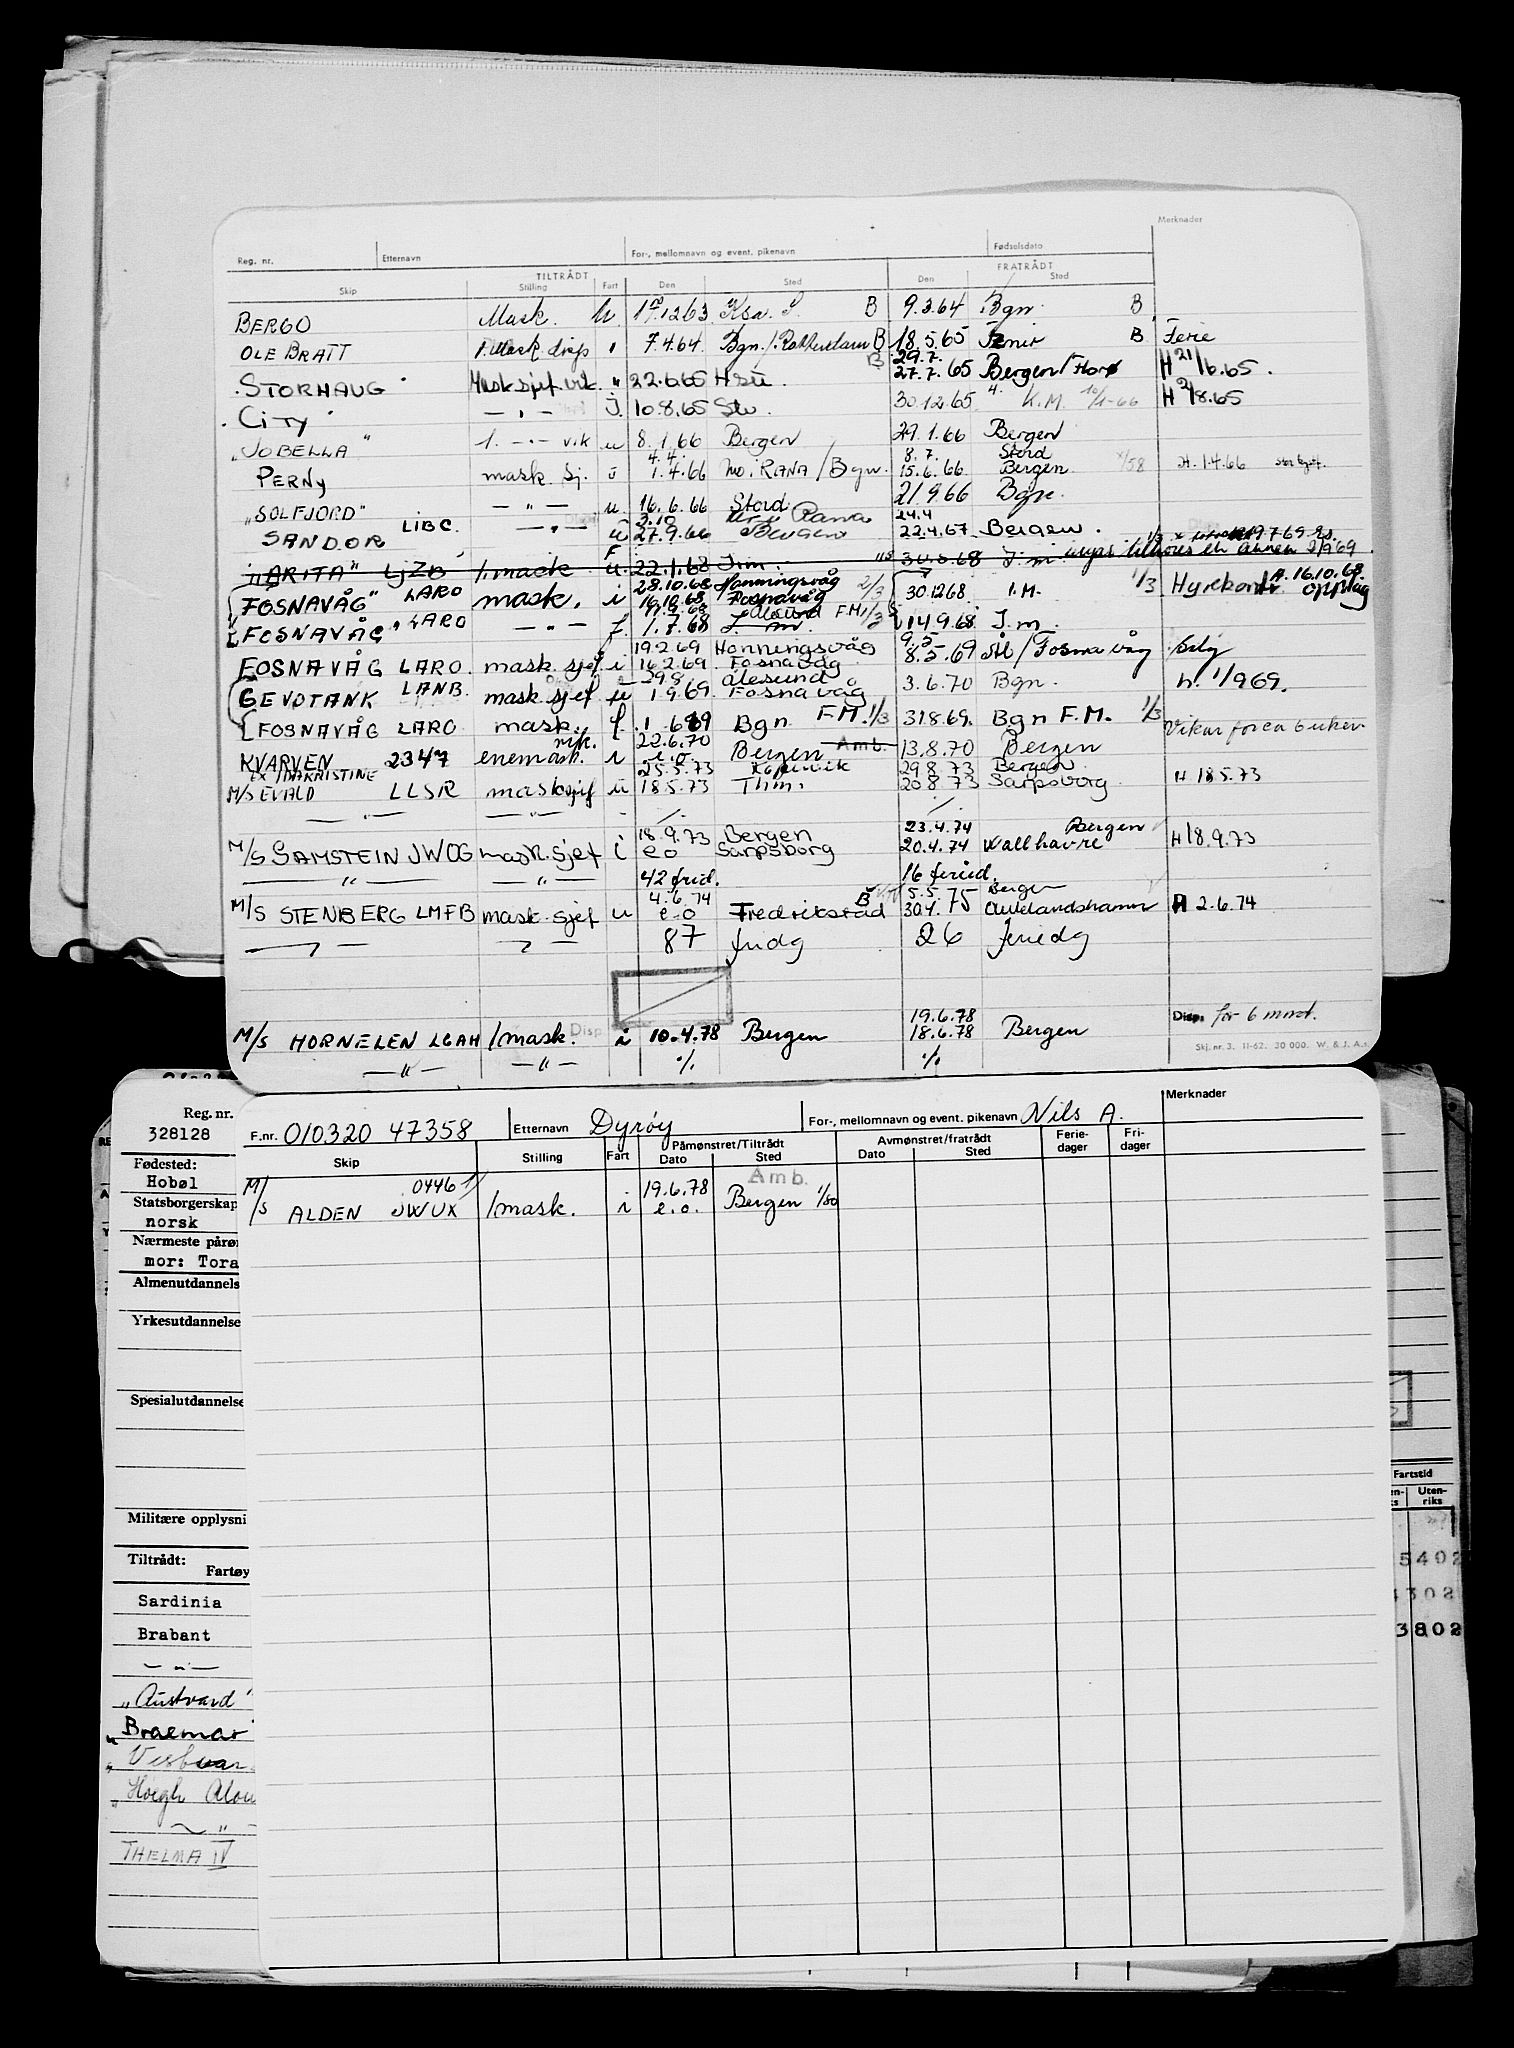 Merknader
Reg. nr. Etternavn For-, mellomnavn og event. pikenavn Fødselsdato
TILTRÅDT FRATRÅDT
Skip Stilling Fart Den Sted Den Sted
BERGO Mask. U. 12.63 Ksa. S. B 9.3.64 Bgn. B
OLE BRATT 1. Mask. disp " 7.4.64. Bgn./ B 18.5.65 B Ferie
29.7.
STORHAUG Mask sjef. vik. " 22.6.65 B 27.7.65 Bergen/Florø H 21/6.65.
CITY — " — J. 10.8.65 Slv. 30.12.65 4. K.M. 10/1-66 H 2/8.65
"JOBELLA" 1. — " — vik u 8.1.66 Bergen 29.1.66 Bergen
4.4. 8.7. Stord
PERNY mask. Sj. i 1.4.66 Mo i RANA / Bgn. 15.6.66. Bergen. H. 1.4.66
"SOLFJORD" — " — u. 16.6.66 Stord 21.9.66 Bgn.
3.10 Rana 24.4
SANDOR LIBC. — " — u 27.9.66 Bergen 22.4.67 Bergen.
"ARITA" LJZB 1. mask. u. 22.1.68 J.m. 30.5.68 J.m. 2/9 69
28.10.68 Honningsvåg
"FOSNAVÅG" LARO mask. i 16.10.68 Fosnavåg 2/3 30.12.68 I.M. 1/3 Hyrekontr. A. 16.10.68 oppdag
Ålesund
"FOSNAVÅG" LARO — " — f. 1.7.68 J. m. F.M. 1/3 14.9.68. J.m.
19.2.69 Honningsvåg 9.5
FOSNAVÅG LARO. mask. sjef i 16.2.69. Fosnavåg 8.5.69 Ål/Fosnavåg
29.8 Ålesund
GEVOTANK LANB. mask. sjef u 1.9.69. Fosnavåg 3.6.70 Bgn. h. 1/9 69.
FOSNAVÅG LARO mask. f. 1.6.69 Bgn F.M. 1/3 31.8.69. Bgn F.M. 1/3 Vikar for ca 6 uker
vik. 22.6.70
KVARVEN 2347 enemask. i e.o. Bergen Amb. 13.8.70 Bergen
EX INAKRISTINE 25.5.73 Kopervik 29.8.73 Bergen
M/S EVALD LLSR masksjef u 18.5.73 Thm. 20.8.73 Sarpsborg H 18.5.73
— " — — " — ./. ./.
18.9.73 Bergen 23.4.74 Bergen
M/S SAMSTEIN JWOG mask. sjef i e o Sarpsborg 20.4.74 Wallhavre H 18.9.73
— " — — " — 42 frid. 16 feried.
4.6.74 B 5.5.75 Bergen
M/S STENBERG LMFB mask. sjef u e.o Fredrikstad 30.4.75 Avelandshamn H 2.6.74
— " — — " — 87 fridg 26 feriedg
19.6.78 Disp. for 6 mnd.
M/S HORNELEN LGAH 1 mask. Disp i 10.4.78 Bergen 18.6.78 Bergen
— " — — " — ./. ./.
Skj. nr. 3. 11-62. 30 000. W. & J. A.s
Merknader
F.nr. 010320 47358 Etternavn Dyrøy For-, mellomnavn og event. pikenavn Nils A.
Påmønstret/Tiltrådt Avmønstret/fratrådt Ferie-dager Fri-dager
Skip Stilling Fart Dato Sted Dato Sted
0446 1) 19.6.78 Amb.
M/S ALDEN JWUX 1 mask. i e.o. Bergen 1/80
Reg. nr.
328128
Fødested:
Hobøl
Statsborgerskap
norsk
Nærmeste pårør
mor: Tora
Almenutdannels
Yrkesutdannelse
Spesialutdannelse
Militære opplysni
Tiltrådt:
Fartøy
Sardinia
Brabant
— " —
"Austvard"
"Braemar"
"Hoegh
— " —
THELMA IV
Fartstid
Uten-riks
5402
4302
3802